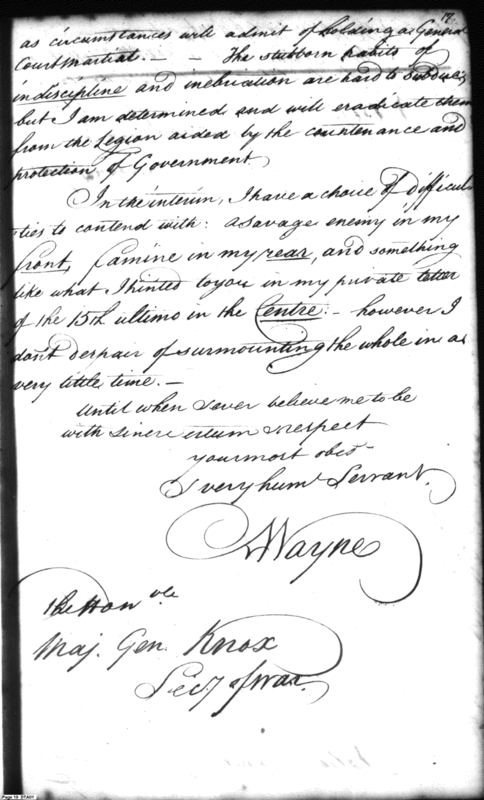 as circumstances will admit of holding a General
Court Martial. — — The stubborn habits of
indiscipline and inebriation are hard to subdue;
but I am determined and will eradicate them
from the Legion aided by the countenance and
protection of Government
In the interim, I have a choice of difficul
ties to contend with: a savage enemy in my
front, famine in my rear, and something
like what I hinted to you in my private letter
of the 15th ultimo in the Centre: – however I
dont despair of surmounting the whole in a
very little time. —
Until when & ever believe me to be
with sincere esteem & respect
your most obt
& very huml Servant.
A Wayne
The Honble
Maj. Gen. Knox
Secy of War.
Page 19